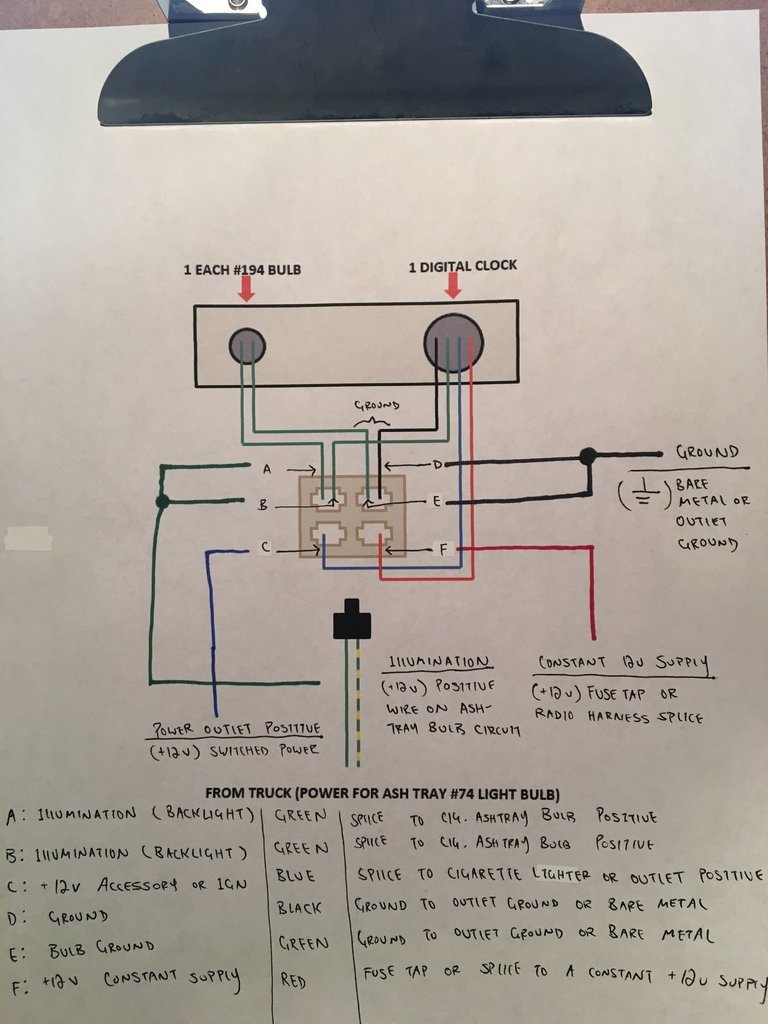 1 EACH #194 BULB
1 DIGITAL CLOCK
GROUND
A
B
C
D
E
F
GROUND
BARE
METAL OR
OUTLET
GROUND
ILLUMINATION
(+12V) POSITIVE
WIRE ON ASH-
TRAY BULB CIRCUIT
CONSTANT 12V SUPPLY
(+12V) FUSE TAP OR
RADIO HARNESS SPLICE
POWER OUTLET POSITIVE
(+12V) SWITCHED POWER
FROM TRUCK (POWER FOR ASH TRAY #74 LIGHT BULB)
A: ILLUMINATION (BACKLIGHT) GREEN SPLICE TO CIG. ASHTRAY BULB POSITIVE
B: ILLUMINATION (BACKLIGHT) GREEN SPLICE TO CIG. ASHTRAY BULB POSITIVE
C: +12V ACCESSORY OR IGN BLUE SPLICE TO CIGARETTE LIGHTER OR OUTLET POSITIVE
D: GROUND BLACK GROUND TO OUTLET GROUND OR BARE METAL
E: BULB GROUND GREEN GROUND TO OUTLET GROUND OR BARE METAL
F: +12V CONSTANT SUPPLY RED FUSE TAP OR SPLICE TO A CONSTANT +12V SUPPLY